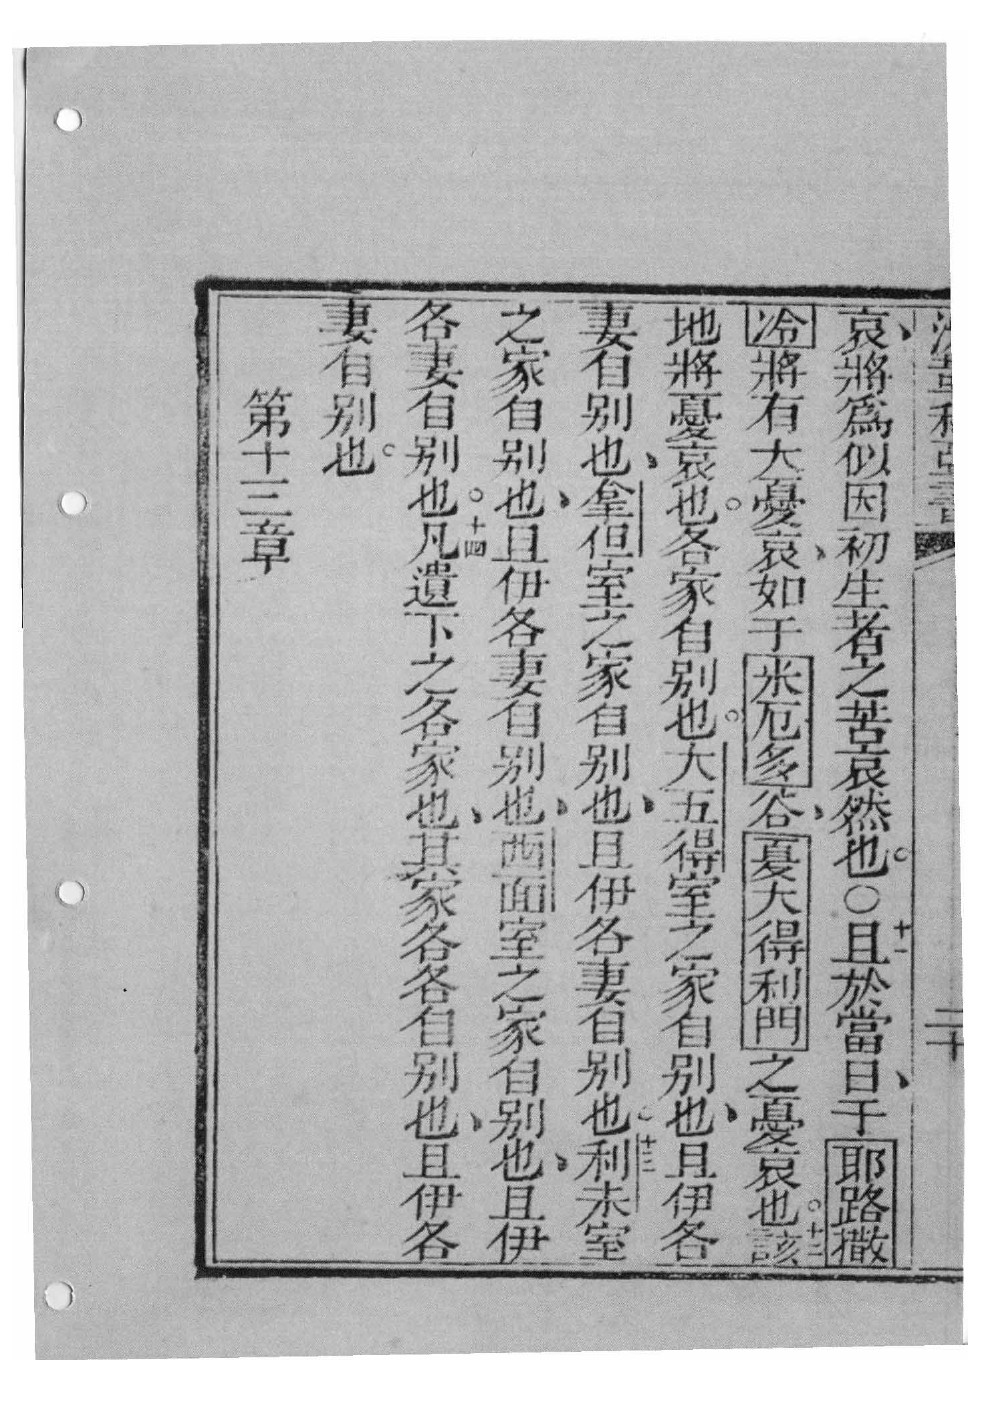 哀、將爲似因初生者之苦哀然也。○十一且於當日、于耶路撒
冷將有大憂哀、如于米厄多谷、夏大得利門之憂哀也。十二該
地將憂哀也。各家自別也。大五得室之家自別也、且伊各
妻自別也、拿但室之家自別也、且伊各妻自別也。十三利未室
之家自別也、且伊各妻自別也、西面室之家自別也、且伊
各妻自別也。十四凡遺下之各家也、其家各各自別也、且伊各
妻自別也。
第十三章